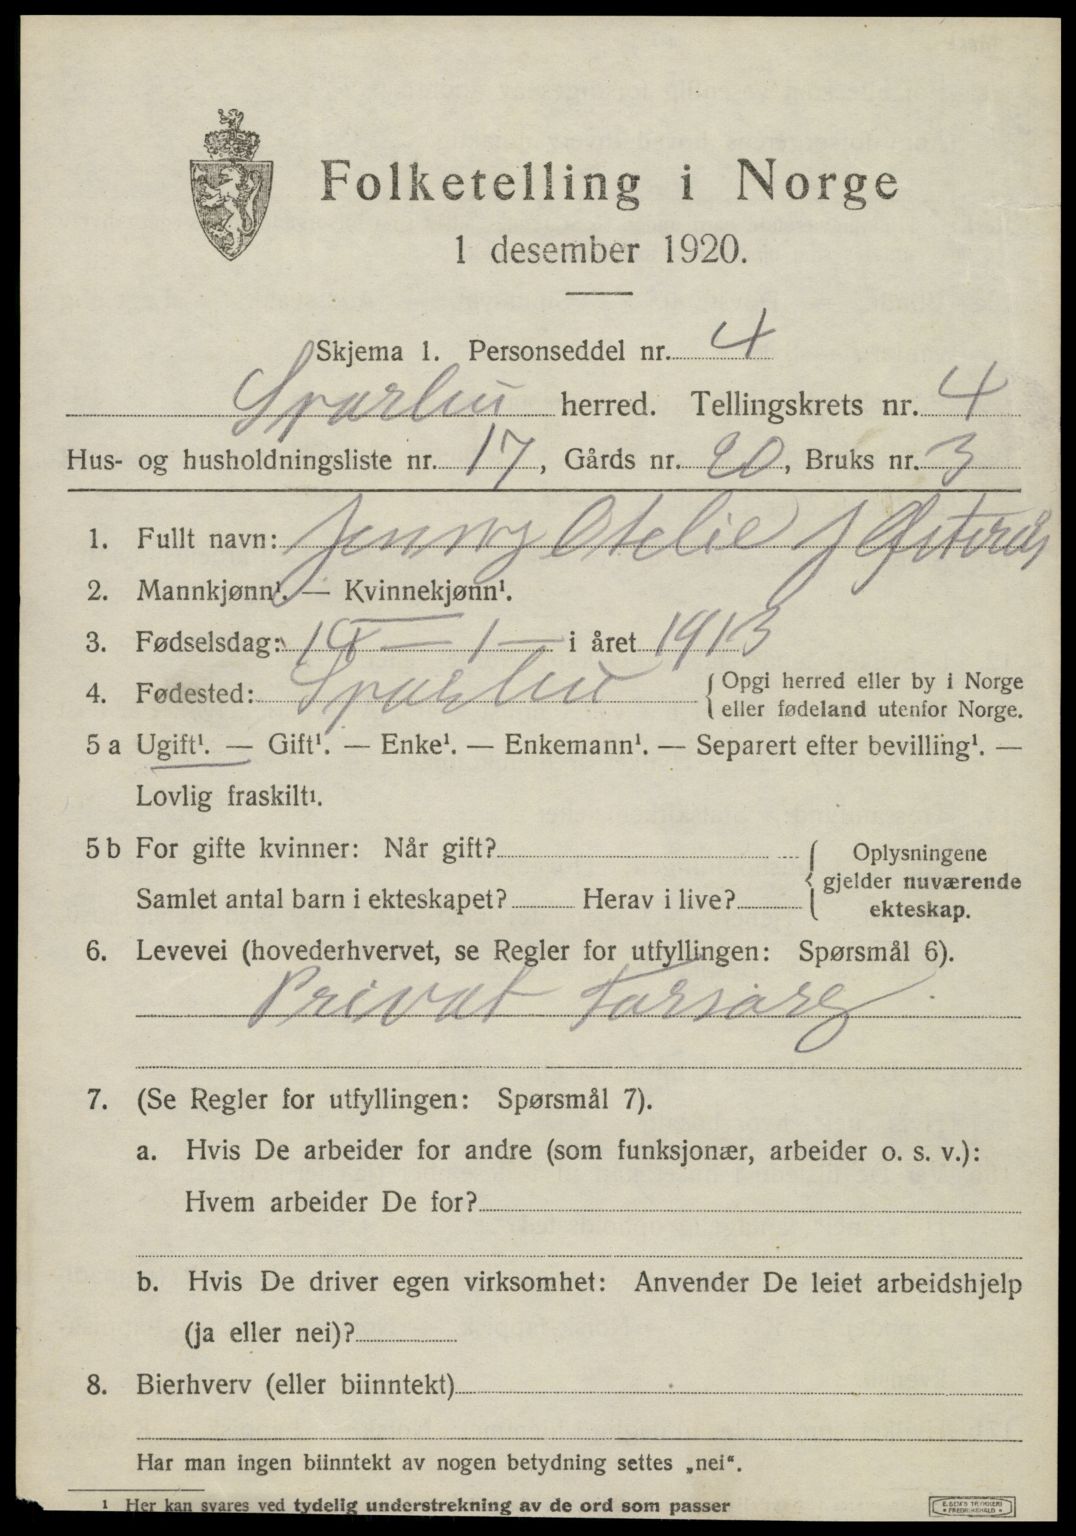 Folketelling i Norge
1 desember 1920.
Skjema 1. Personseddel nr. 4
Sparbu herred. Tellingskrets nr. 4
Hus- og husholdningsliste nr. 17, Gårds nr. 20, Bruks nr. 3
1. Fullt navn: Jenny Otelie J Østerås
2. Mannkjønn¹. — Kvinnekjønn¹.
3. Fødselsdag: 19 — 1 — i året 1913
4. Fødested: Sparbu {Opgi herred eller by i Norge
eller fødeland utenfor Norge.
5 a Ugift¹. — Gift¹. — Enke¹. — Enkemann¹. — Separert efter bevilling¹. —
Lovlig fraskilt¹.
5 b For gifte kvinner: Når gift? Oplysningene
gjelder nuværende
Samlet antal barn i ekteskapet? Herav i live? ekteskap.
6. Levevei (hovederhvervet, se Regler for utfyllingen: Spørsmål 6).
Privat Forsørg
7. (Se Regler for utfyllingen: Spørsmål 7).
a. Hvis De arbeider for andre (som funksjonær, arbeider o. s. v.):
Hvem arbeider De for?
b. Hvis De driver egen virksomhet: Anvender De leiet arbeidshjelp
(ja eller nei)?
8. Bierhverv (eller biinntekt)
Har man ingen biinntekt av nogen betydning settes „nei“.
¹ Her kan svares ved tydelig understrekning av de ord som passer